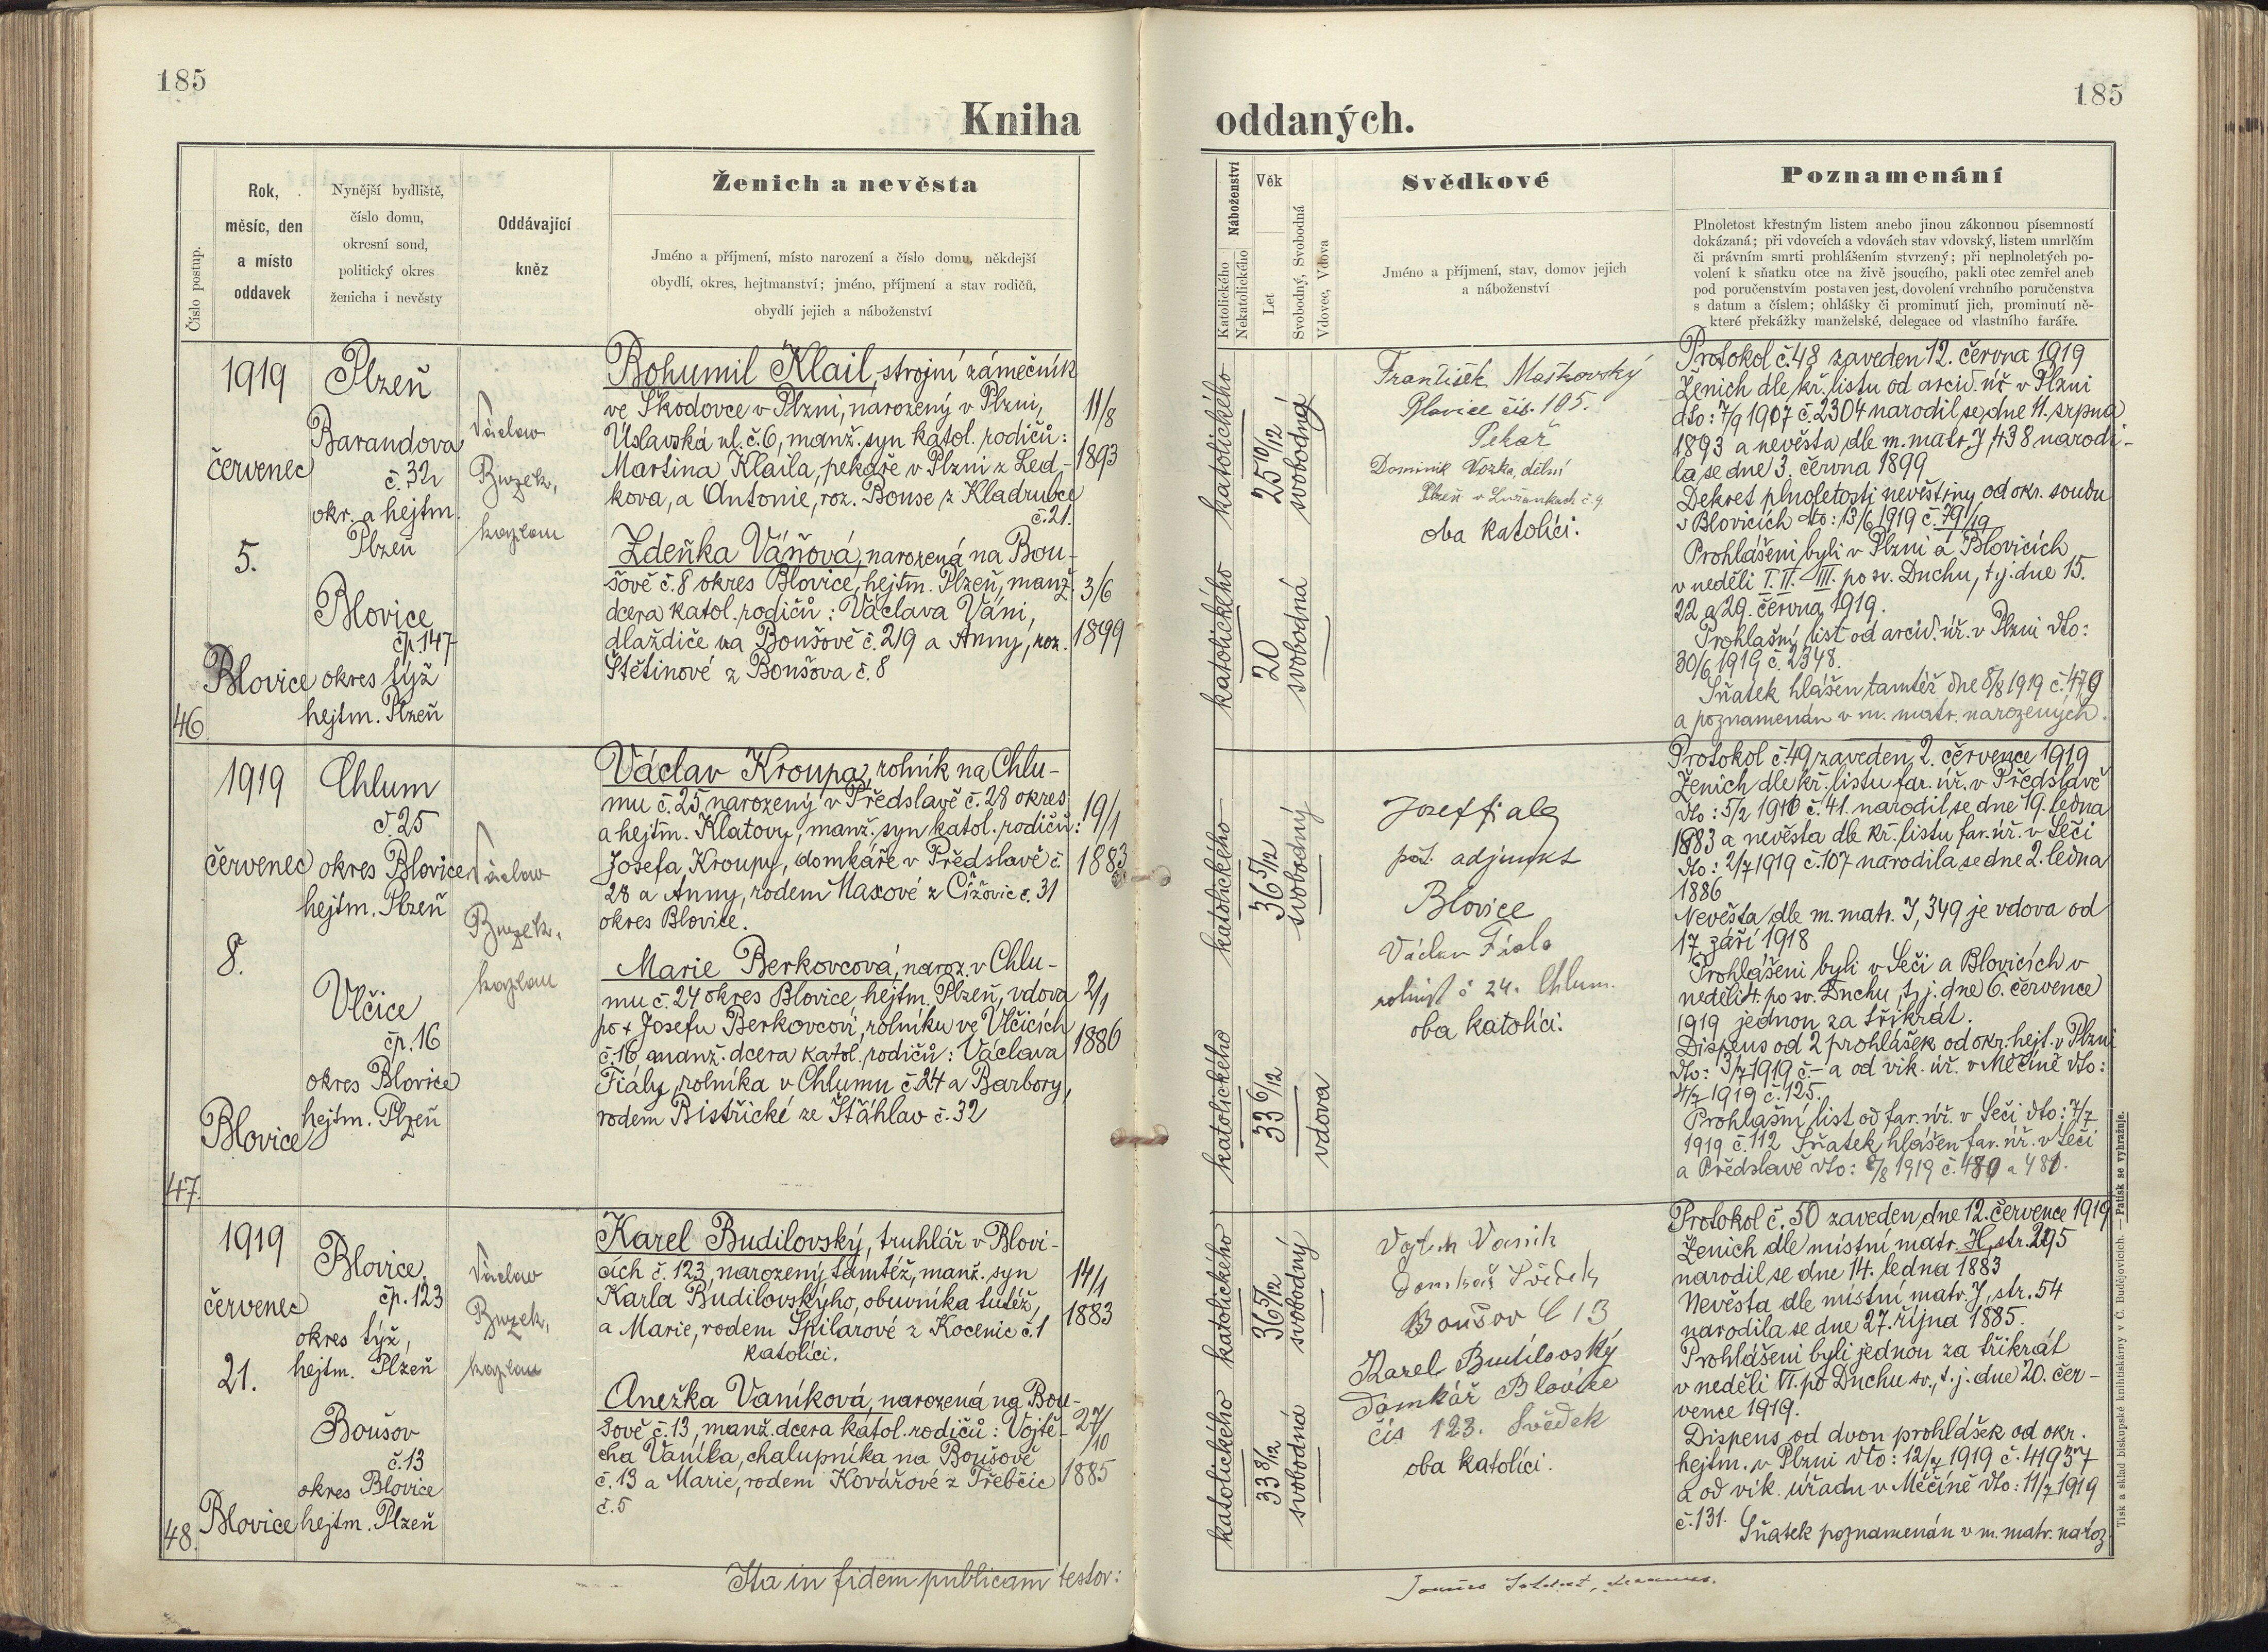 185
185
Kniha
oddaných.
Číslo postup.
Rok,
měsíc, den
a místo
oddavek
Nynější bydliště,
číslo domu,
okresní soud,
politický okres
ženicha i nevěsty
Oddávající
kněz
Ženich a nevěsta
Jméno a příjmení, místo narození a číslo domu, někdejší
obydlí, okres, hejtmanství; jméno, příjmení a stav rodičů,
obydlí jejich a náboženství
Náboženství
Katolického
Nekatolického
Věk
Let
Svobodný, Svobodná
Vdovec, Vdova
Svědkové
Jméno a příjmení, stav, domov jejich
a náboženství
Poznamenání
Plnoletost křestným listem anebo jinou zákonnou písemností
dokázaná; při vdovcích a vdovách stav vdovský, listem umrlčím
či právním smrti prohlášením stvrzený; při neplnoletých po-
volení k sňatku otce na živě jsoucího, pakli otec zemřel aneb
pod poručenstvím postaven jest, dovolení vrchního poručenstva
s datum a číslem; ohlášky či prominutí jich, prominutí ně-
které překážky manželské, delegace od vlastního faráře.
46.
1919
červenec
5.
Blovice
Plzeň
Barandova
č. 32
okr. a hejtm.
Plzeň
Blovice
čp. 147
okres týž
hejtm. Plzeň
Václav
Buzek,
kaplan
Bohumil Klail, strojní zámečník
ve Škodovce v Plzni, narozený v Plzni,
Úslavská ul. č. 6, manž. syn katol. rodičů:
Martina Klaila, pekaře v Plzni z Led-
kova, a Antonie, roz. Bouse z Kladrubce
č. 21.
11/8
1893
Zdeňka Váňová, narozená na Bou-
šově č. 8 okres Blovice, hejtm. Plzeň, manž.
dcera katol. rodičů: Václava Váni,
dlaždiče na Boušově č. 219 a Anny, roz.
Štětinové z Boušova č. 8
3/6
1899
katolického
25 10/12
svobodný
katolického
20
svobodná
František Maškovský
Blovice čís. 185.
Pekař
Dominik Vozka, dělní
Plzeň v Lužánkách č. 9
oba katolíci.
Protokol č. 48 zaveden 12. června 1919
Ženich dle kř. listu od arcid. úř. v Plzni
dto: 7/9 1907 č. 2304 narodil se dne 11. srpna
1893 a nevěsta dle m. matr. J, 438 narodi-
la se dne 3. června 1899
Dekret plnoletosti nevěstiny od okr. soudu
v Blovicích dto: 13/6 1919 č. 79/19
Prohlášeni byli v Plzni a Blovicích
v neděli I. II. III. po sv. Duchu, t. j. dne 15.
22. a 29. června 1919.
Prohlašní list od arcid. úř. v Plzni dto:
30/6 1919 č. 2348.
Sňatek hlášen tamtéž dne 8/8 1919 č. 479
a poznamenán v m. matr. narozených.
47.
1919
červenec
8.
Blovice
Chlum
č. 25
okres Blovice
hejtm. Plzeň
Vlčice
čp. 16
okres Blovice
hejtm. Plzeň
Václav
Buzek,
kaplan
Václav Kroupa, rolník na Chlu-
mu č. 25 narozený v Předslavě č. 28 okres
a hejtm. Klatovy, manž. syn katol. rodičů:
Josefa Kroupy, domkáře v Předslavě č.
28 a Anny, rodem Maxové z Čížovic č. 31
okres Blovice.
19/1
1883
Marie Berkovcová, naroz. v Chlu-
mu č. 24 okres Blovice hejtm. Plzeň, vdova
po + Josefu Berkovcovi, rolníku ve Vlčicích
č. 16 a manž. dcera katol. rodičů: Václava
Fialy, rolníka v Chlumu č. 24 a Barbory,
rodem Bistřické ze Šťáhlav č. 32
2/1
1886
katolického
36 5/12
svobodný
katolického
33 6/12
vdova
Josef Fiala
pošt. adjunkt
Blovice
Václav Fiala
rolník č 24. Chlum.
oba katolíci.
Protokol č. 49 zaveden 2. července 1919
Ženich dle kř. listu far. úř. v Předslavě
dto: 5/2 1910 č. 41. narodil se dne 19. ledna
1883 a nevěsta dle kř. listu far. úř. v Seči
dto: 2/7 1919 č. 107 narodila se dne 2. ledna
1886
Nevěsta dle m. matr. J, 349 je vdova od
17. září 1918
Prohlášeni byli v Seči a Blovicích v
neděli 4. po sv. Duchu, t. j. dne 6. července
1919 jednou za třikrát.
Dispens od 2 prohlášek od okr. hejt. v Plzni
dto: 3/7 1919 č. – a od vik. úř. v Měčíně dto:
4/7 1919 č. 125.
Prohlašní list od far. úř. v Seči dto: 7/7
1919 č. 112 Sňatek hlášen far. úř. v Seči
a Předslavě dto: 8/8 1919 č. 480 a 481.
48.
1919
červenec
21.
Blovice
Blovice
čp. 123
okres týž,
hejtm. Plzeň
Boušov
č. 13
okres Blovice
hejtm. Plzeň
Václav
Buzek,
kaplan
Karel Budilovský, truhlář v Blovi-
cích č. 123, narozený tamtéž, manž. syn
Karla Budilovskýho, obuvníka tutéž,
a Marie, rodem Špilarové z Kocenic č. 1
katolíci.
14/1
1883
Anežka Vaníková, narozená na Bou-
šově č. 13, manž. dcera katol. rodičů: Vojtě-
cha Vaníka, chalupníka na Boušově
č. 13 a Marie, rodem Kovářové z Třebčic
č. 5
27/10
1885
katolického
36 5/12
svobodný
katolického
33 8/12
svobodná
Vojtěch Vaník
domkář Svědek
Boušov č 13
Karel Budilovský
Domkář Blovice
čís 123. Svědek
oba katolíci.
Protokol č. 50 zaveden dne 12. července 1919
Ženich dle místní matr. H, str. 295
narodil se dne 14. ledna 1883
Nevěsta dle místní matr. J, str. 54
narodila se dne 27. října 1885.
Prohlášeni byli jednou za třikrát
v neděli VI. po Duchu sv., t. j. dne 20. čer-
vence 1919.
Dispens od dvou prohlášek od okr.
hejtm. v Plzni dto: 12/7 1919 č. 41937
a od vik. úřadu v Měčíně dto: 11/7 1919
č. 131. Sňatek poznamenán v m. matr. naroz.
Ita in fidem publicam testor:
Tisk a sklad biskupské knihtiskárny v Č. Budějovicích. — Patisk se vyhražuje.